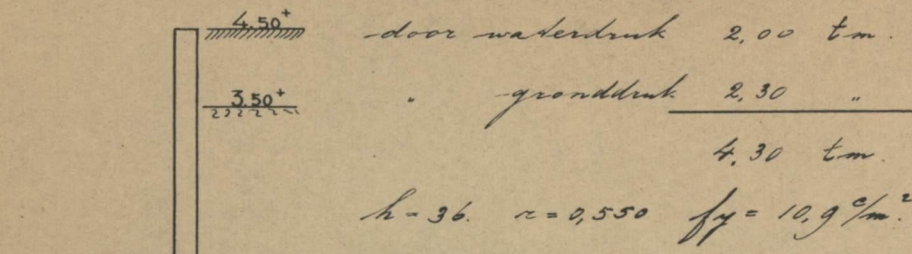 4.50+ door waterdruk 2,00 tm.
3.50+ " gronddruk 2,30 "
4,30 tm.
h = 36. r = 0,550 fy = 10,9 c/m.²